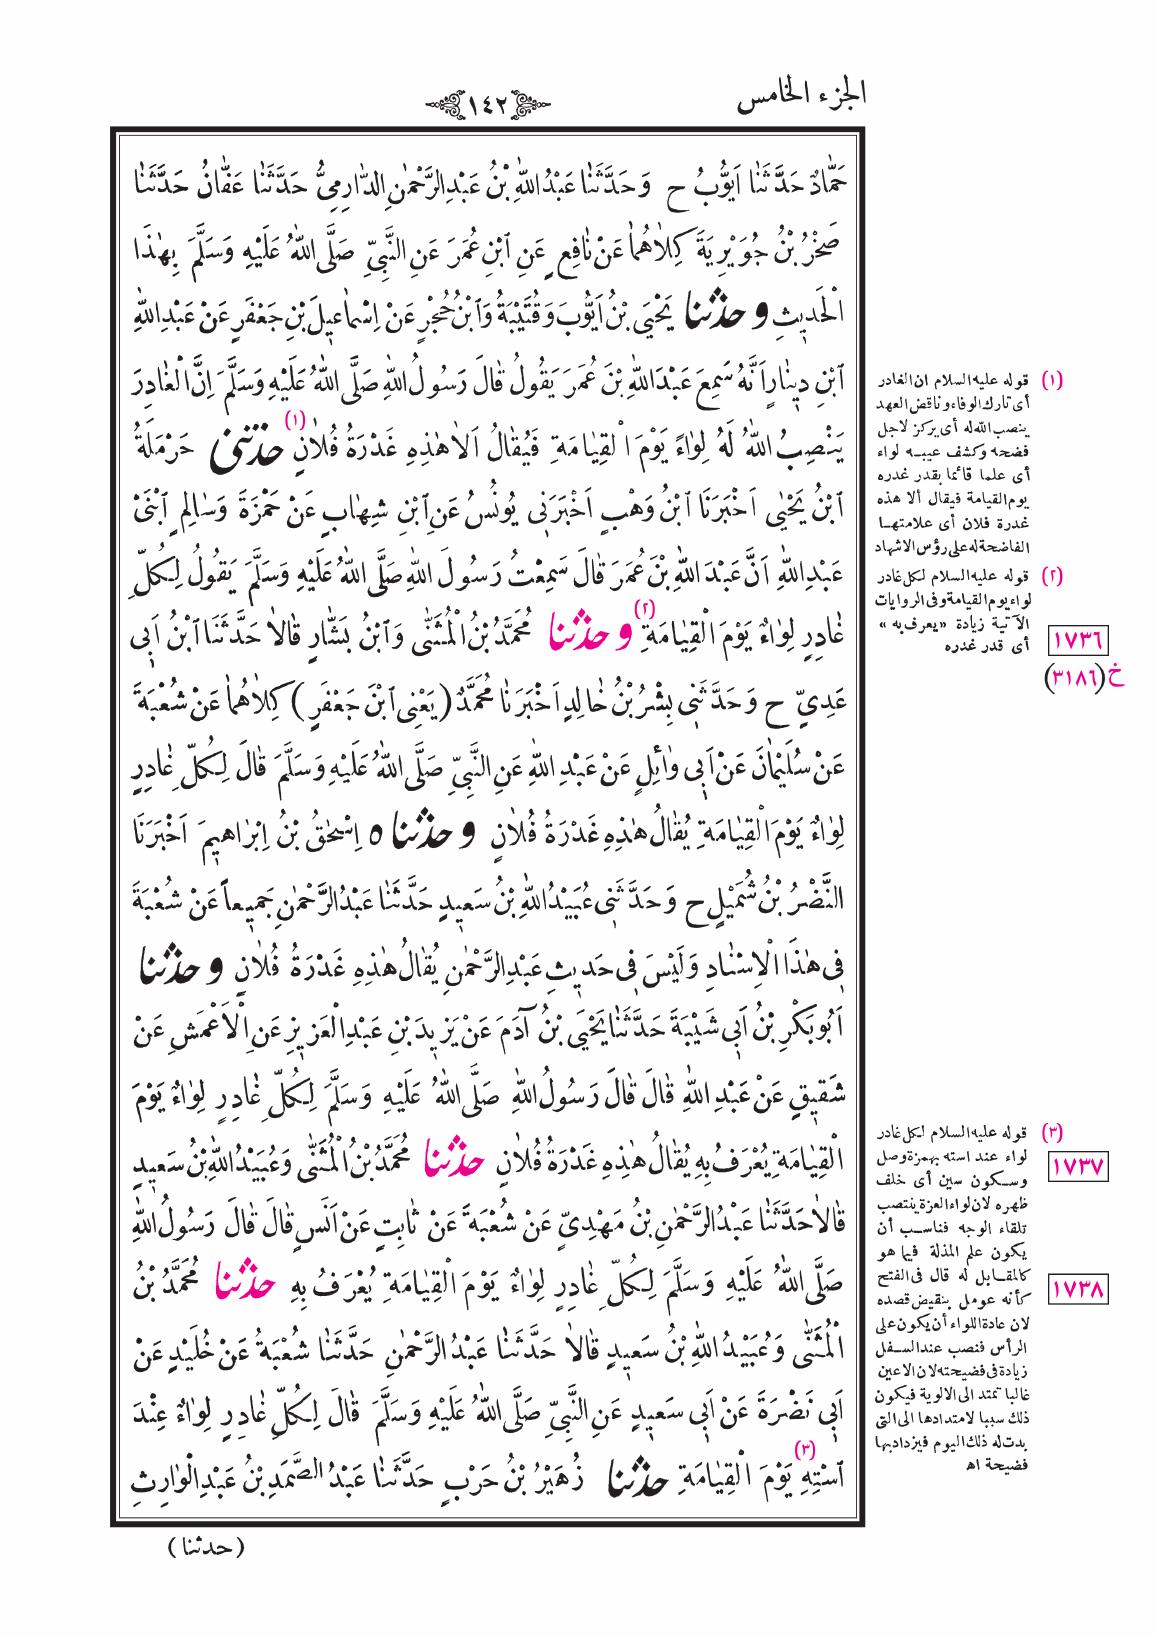 الجزء الخامس
١٤٢
حَمَّادٌ حَدَّثَنَا اَيُّوبُ ح وَحَدَّثَنَا عَبْدُاللّٰهِ بْنُ عَبْدِالرَّحْمٰنِ الدَّارِمِىُّ حَدَّثَنَا عَفَّانُ حَدَّثَنَا
صَخْرُ بْنُ جُوَيْرِيَةَ كِلَاهُمَا عَنْ نَافِعٍ عَنِ ابْنِ عُمَرَ عَنِ النَّبِىِّ صَلَّى اللّٰهُ عَلَيْهِ وَسَلَّمَ بِهٰذَا
الْحَدِيثِ و حدثنا يَحْيَى بْنُ اَيُّوبَ وَقُتَيْبَةُ وَابْنُ حُجْرٍ عَنْ اِسْمَاعِيلَ بْنِ جَعْفَرٍ عَنْ عَبْدِاللّٰهِ
ابْنِ دِينَارٍ اَنَّهُ سَمِعَ عَبْدَاللّٰهِ بْنَ عُمَرَ يَقُولُ قَالَ رَسُولُ اللّٰهِ صَلَّى اللّٰهُ عَلَيْهِ وَسَلَّمَ اِنَّ الْغَادِرَ
يَنْصِبُ اللّٰهُ لَهُ لِوَاءً يَوْمَ الْقِيَامَةِ فَيُقَالُ اَلَا هٰذِهِ غَدْرَةُ فُلَانٍ (١) حدثنى حَرْمَلَةُ
ابْنُ يَحْيٰى اَخْبَرَنَا ابْنُ وَهْبٍ اَخْبَرَنِى يُونُسُ عَنِ ابْنِ شِهَابٍ عَنْ حَمْزَةَ وَسَالِمٍ ابْنَىْ
عَبْدِاللّٰهِ اَنَّ عَبْدَ اللّٰهِ بْنَ عُمَرَ قَالَ سَمِعْتُ رَسُولَ اللّٰهِ صَلَّى اللّٰهُ عَلَيْهِ وَسَلَّمَ يَقُولُ لِكُلِّ
غَادِرٍ لِوَاءٌ يَوْمَ الْقِيَامَةِ (٢) و حدثنا مُحَمَّدُ بْنُ الْمُثَنّٰى وَابْنُ بَشَّارٍ قَالَا حَدَّثَنَا ابْنُ اَبِى
عَدِىٍّ ح وَحَدَّثَنِى بِشْرُ بْنُ خَالِدٍ اَخْبَرَنَا مُحَمَّدٌ (يَعْنِى ابْنَ جَعْفَرٍ) كِلَاهُمَا عَنْ شُعْبَةَ
عَنْ سُلَيْمَانَ عَنْ اَبِى وَائِلٍ عَنْ عَبْدِ اللّٰهِ عَنِ النَّبِىِّ صَلَّى اللّٰهُ عَلَيْهِ وَسَلَّمَ قَالَ لِكُلِّ غَادِرٍ
لِوَاءٌ يَوْمَ الْقِيَامَةِ يُقَالُ هٰذِهِ غَدْرَةُ فُلَانٍ و حدثنا ه اِسْحٰقُ بْنُ اِبْرَاهِيمَ اَخْبَرَنَا
النَّضْرُ بْنُ شُمَيْلٍ ح وَحَدَّثَنِى عُبَيْدُاللّٰهِ بْنُ سَعِيدٍ حَدَّثَنَا عَبْدُالرَّحْمٰنِ جَمِيعاً عَنْ شُعْبَةَ
فِى هٰذَا الْاِسْنَادِ وَلَيْسَ فِى حَدِيثِ عَبْدِالرَّحْمٰنِ يُقَالُ هٰذِهِ غَدْرَةُ فُلَانٍ و حدثنا
اَبُوبَكْرِ بْنُ اَبِى شَيْبَةَ حَدَّثَنَا يَحْيَى بْنُ آدَمَ عَنْ يَزِيدَ بْنِ عَبْدِ الْعَزِيزِ عَنِ الْاَعْمَشِ عَنْ
شَقِيقٍ عَنْ عَبْدِ اللّٰهِ قَالَ قَالَ رَسُولُ اللّٰهِ صَلَّى اللّٰهُ عَلَيْهِ وَسَلَّمَ لِكُلِّ غَادِرٍ لِوَاءٌ يَوْمَ
الْقِيَامَةِ يُعْرَفُ بِهِ يُقَالُ هٰذِهِ غَدْرَةُ فُلَانٍ حدثنا مُحَمَّدُ بْنُ الْمُثَنّٰى وَعُبَيْدُاللّٰهِ بْنُ سَعِيدٍ
قَالَا حَدَّثَنَا عَبْدُالرَّحْمٰنِ بْنُ مَهْدِىٍّ عَنْ شُعْبَةَ عَنْ ثَابِتٍ عَنْ اَنَسٍ قَالَ قَالَ رَسُولُ اللّٰهِ
صَلَّى اللّٰهُ عَلَيْهِ وَسَلَّمَ لِكُلِّ غَادِرٍ لِوَاءٌ يَوْمَ الْقِيَامَةِ يُعْرَفُ بِهِ حدثنا مُحَمَّدُ بْنُ
الْمُثَنّٰى وَعُبَيْدُ اللّٰهِ بْنُ سَعِيدٍ قَالَا حَدَّثَنَا عَبْدُ الرَّحْمٰنِ حَدَّثَنَا شُعْبَةُ عَنْ خُلَيْدٍ عَنْ
اَبِى نَضْرَةَ عَنْ اَبِى سَعِيدٍ عَنِ النَّبِىِّ صَلَّى اللّٰهُ عَلَيْهِ وَسَلَّمَ قَالَ لِكُلِّ غَادِرٍ لِوَاءٌ عِنْدَ
اسْتِهِ يَوْمَ الْقِيَامَةِ (٣) حدثنا زُهَيْرُ بْنُ حَرْبٍ حَدَّثَنَا عَبْدُ الصَّمَدِ بْنُ عَبْدِ الْوَارِثِ
(حدثنا)
(١) قوله عليه السلام ان الغادر
أى تارك الوفاء وناقض العهد
ينصب الله له أى يركز لاجل
فضحه وكشف عيبه لواء
أى علما قائما بقدر غدره
يوم القيامة فيقال ألا هذه
غدرة فلان أى علامتها
الفاضحة له على رؤس الاشهاد
(٢) قوله عليه السلام لكل غادر
لواء يوم القيامة وفى الروايات
الآتية زيادة «يعرف به»
أى قدر غدره
١٧٣٦
خ (٣١٨٦)
(٣) قوله عليه السلام لكل غادر
لواء عند استه بهمزة وصل
وسكون سين أى خلف
ظهره لان لواء العزة ينتصب
تلقاء الوجه فناسب أن
يكون علم المذلة فيما هو
كالمقابل له قال فى الفتح
كأنه عومل بنقيض قصده
لان عادة اللواء أن يكون على
الرأس فنصب عند السفل
زيادة فى فضيحته لان الاعين
غالبا تمتد الى الالوية فيكون
ذلك سببا لامتدادها الى التى
بدت له ذلك اليوم فيزداد بها
فضيحة اه
١٧٣٧
١٧٣٨